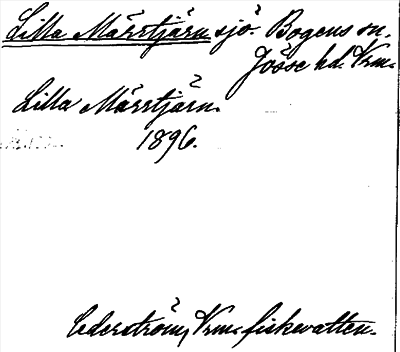 Lilla Märrtjärn sjö. Bogens sn.
Jösse hd. Vrm.
Lilla Märrtjärn.
1896.
Cederström, Vrm. fiskevatten.